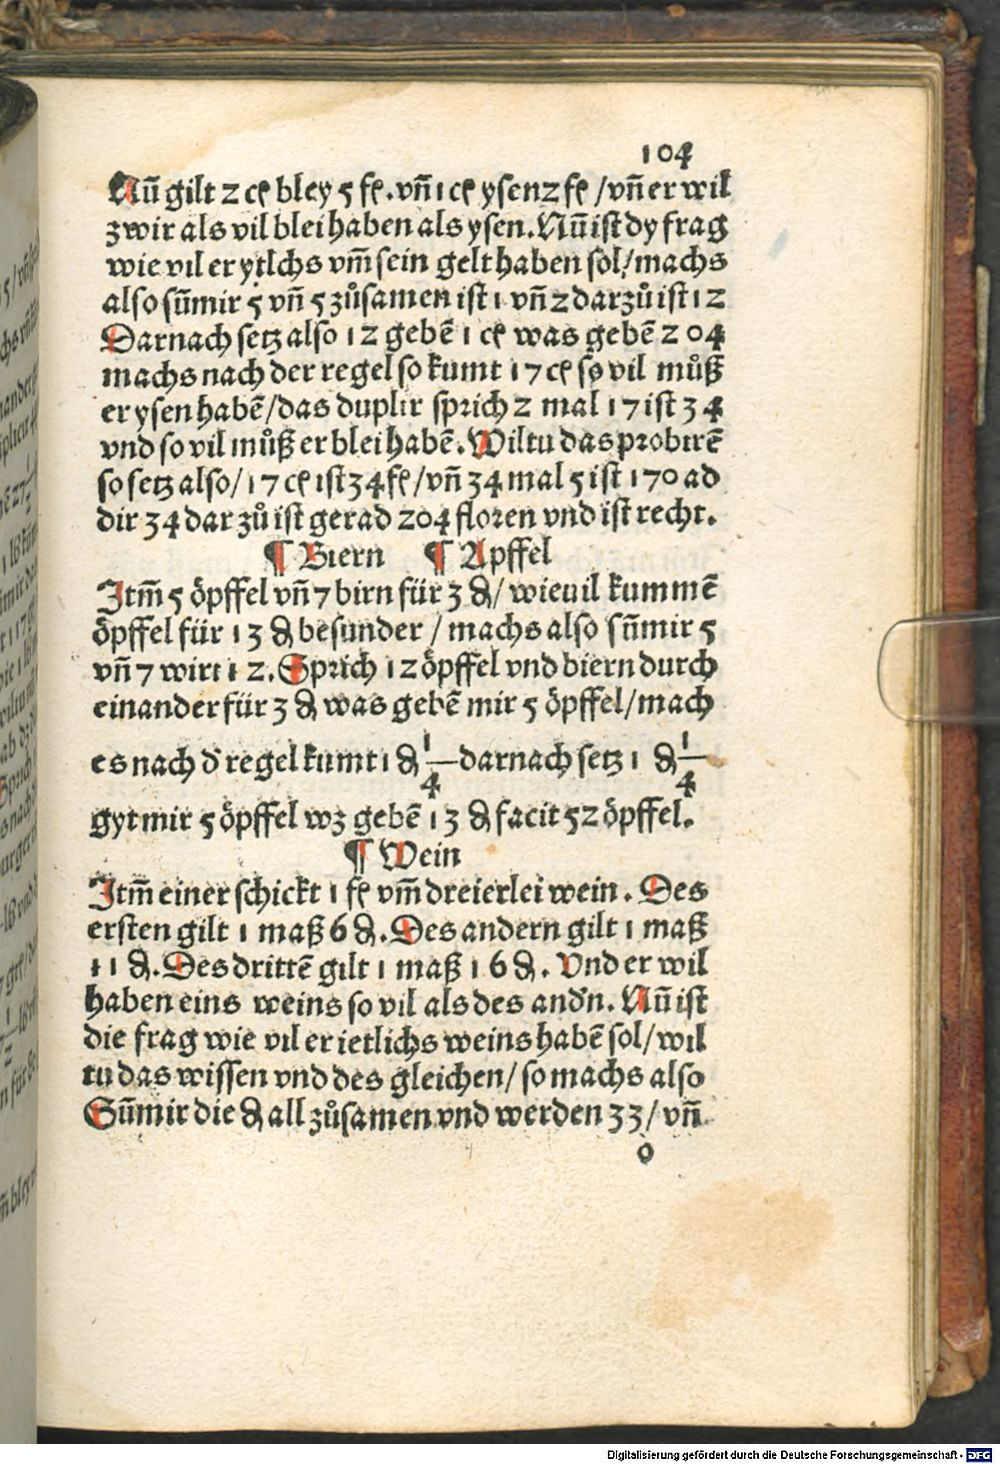 104
Nũ gilt 2 cꝭ bley 5 fꝭ. vñ 1 cꝭ ysen 2 fꝭ / vñ er wil
zwir als vil blei haben als ysen. Nũ ist dy frag
wie vil er ytlchs vm̃ sein gelt haben sol / machs
also sũmir 5 vñ 5 zůsamen ist 1 vñ 2 darzů ist 12
Darnach setz also 12 gebẽ 1 cꝭ was gebẽ 204
machs nach der regel so kumt 17 cꝭ so vil můß
er ysen habẽ / das duplir sprich 2 mal 17 ist 34
vnd so vil můß er blei habẽ. Wiltu das probirẽ
so setz also / 17 cꝭ ist 34 fꝭ / vñ 34 mal 5 ist 170 ad
dir 34 dar zů ist gerad 204 floren vnd ist recht.
¶ Biern ¶ Apffel
Itm̃ 5 öpffel vñ 7 birn für 3 ₰ / wieuil kummẽ
öpffel für 13 ₰ besunder / machs also sũmir 5
vñ 7 wirt 12. Sprich 12 öpffel vnd biern durch
einander für 3 ₰ was gebẽ mir 5 öpffel / mach
es nach d̕ regel kumt 1 ₰ 1/4 darnach setz 1 ₰ 1/4
gyt mir 5 öpffel wz gebẽ 13 ₰ facit 52 öpffel.
¶ Wein
Itm̃ einer schickt 1 fꝭ vm̃ dreierlei wein. Des
ersten gilt 1 maß 6 ₰. Des andern gilt 1 maß
11 ₰. Des drittẽ gilt 1 maß 16 ₰. Vnd er wil
haben eins weins so vil als des and̕n. Nũ ist
die frag wie vil er ietlichs weins habẽ sol / wil
tu das wissen vnd des gleichen / so machs also
Sũmir die ₰ all zůsamen vnd werden 33 / vñ
o
Digitalisierung gefördert durch die Deutsche Forschungsgemeinschaft - DFG